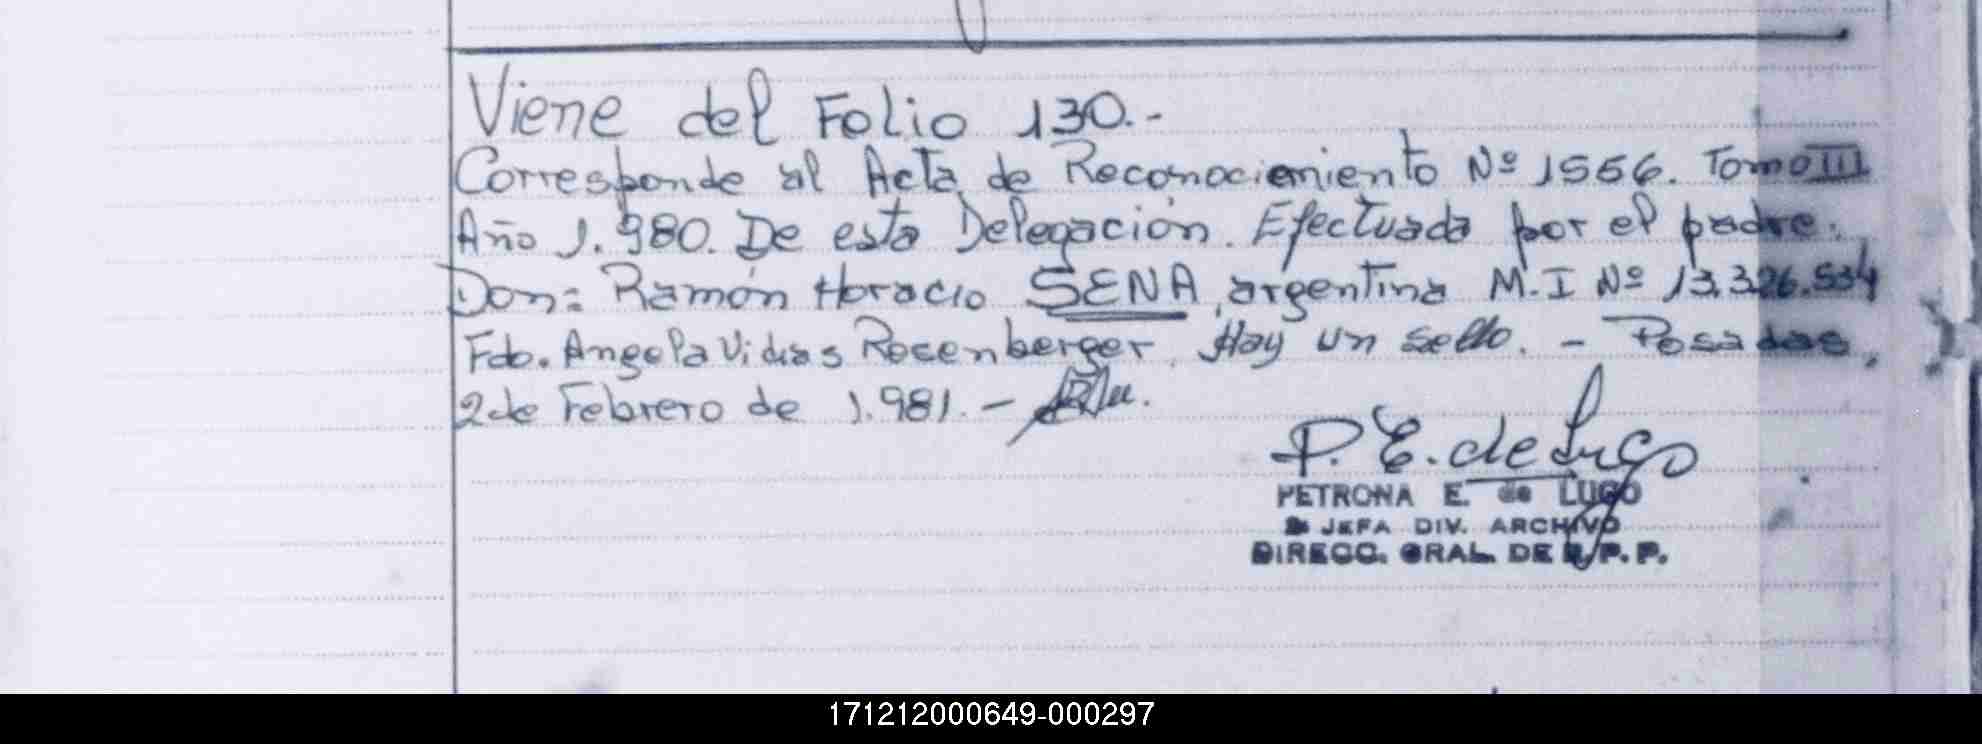 Viene del Folio 130.-
Corresponde al Acta de Reconociemiento Nº 1556. Tomo III
Año 1.980. De esta Delegación. Efectuada por el padre.
Don: Ramón Horacio SENA, argentina M.I Nº 13.326.534
Fdo. Angela Vidias Rosenberger. Hay un sello. - Posadas,
2 de Febrero de 1.981.-
P. E. de Lugo
PETRONA E. de LUGO
JEFA DIV. ARCHIVO
DIRECC. GRAL. DE R.P.P.
171212000649-000297